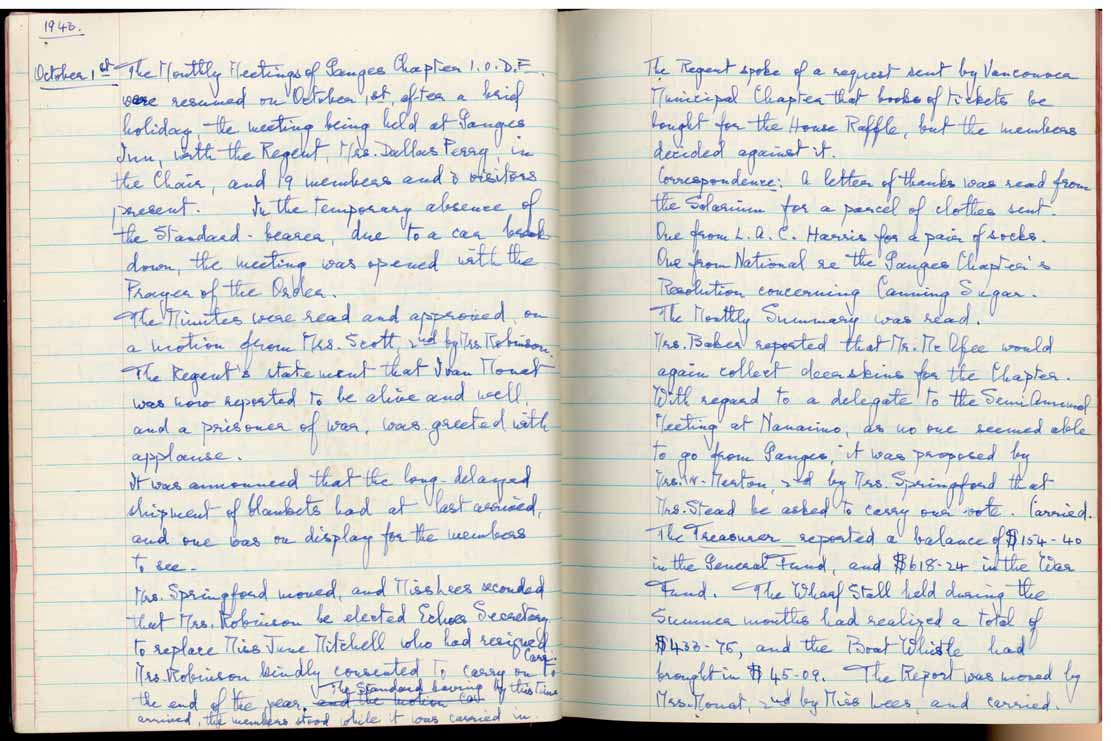 1943.
October 1st The Monthly Meetings of Ganges Chapter I.O.D.E.
were resumed on October 1st, after a brief
holiday, the meeting being held at Ganges
Inn, with the Regent, Mrs. Dallas Perry, in
the Chair, and 19 members and 3 visitors
present. In the temporary absence of
the Standard-bearer, due to a car break
down, the meeting was opened with the
Prayer of the Order.
The Minutes were read and approved, on
a motion from Mrs. Scott, 2nd by Mrs. Robinson.
The Regent's statement that Ivan Mouat
was now reported to be alive and well,
and a prisoner of war, was greeted with
applause.
It was announced that the long-delayed
shipment of blankets had at last arrived,
and one was on display for the members
to see.
Mrs. Springford moved, and Miss Lees seconded
that Mrs. Robinson be elected Echoes Secretary
to replace Miss June Mitchell who had resigned.
Mrs. Robinson kindly consented to carry on to
the end of the year. and the motion The Standard having by this time
arrived, the members stood while it was carried in.
The Regent spoke of a request sent by Vancouver
Municipal Chapter that books of tickets be
bought for the House Raffle, but the members
decided against it.
Correspondence: A letter of thanks was read from
the Solarium for a parcel of clothes sent.
One from L.A.C. Harris for a pair of socks.
One from National re the Ganges Chapter's
Resolution concerning Canning Sugar.
The Monthly Summary was read.
Mrs. Baker reported that Mr. Mc Afee would
again collect deerskins for the Chapter.
With regard to a delegate to the Semi Annual
Meeting at Nanaimo, as no one seemed able
to go from Ganges, it was proposed by
Mrs. W. Norton, 2nd by Mrs. Springford that
Mrs. Stead be asked to carry our vote. Carried.
The Treasurer reported a balance of $154-40
in the General Fund, and $618-24 in the War
Fund. The Wharf Stall held during the
Summer months had realized a total of
$433-75, and the Boat Whistle had
brought in $45-09. The Report was moved by
Mrs. Mouat, 2nd by Miss Lees, and carried.